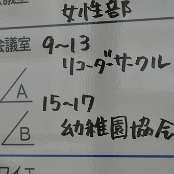 女性部
会議室
9~13
リコーダーサークル
A
15~17
B
幼稚園協会